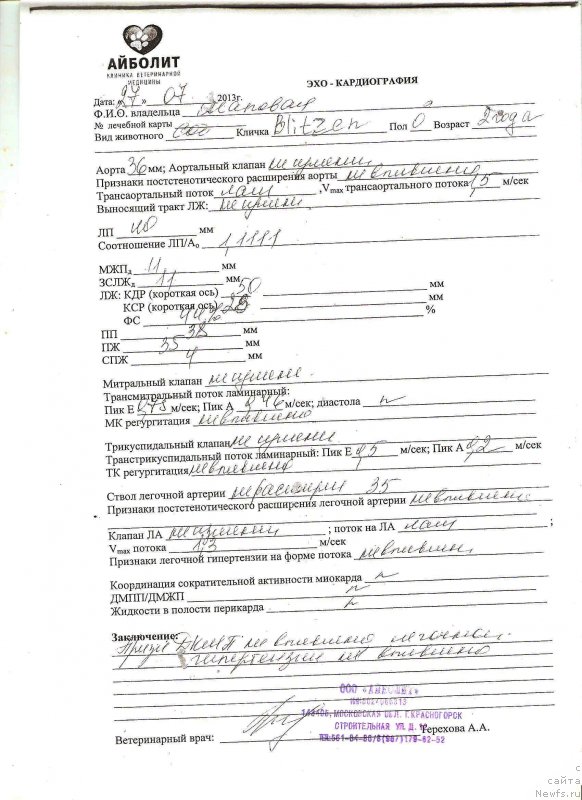 АЙБОЛИТ
КЛИНИКА ВЕТЕРИНАРНОЙ
МЕДИЦИНЫ
ЭХО - КАРДИОГРАФИЯ
Дата: «27» 07 2013г.
Ф.И.О. владельца
№ лечебной карты
Вид животного соб Кличка Blitzen Пол Возраст 2 года
Аорта 36 мм; Аортальный клапан не изменен
Признаки постстенотического расширения аорты не выявлено
Трансаортальный поток лам , Vmax трансаортального потока 1,5 м/сек
Выносящий тракт ЛЖ: не изменен
ЛП 40 мм
Соотношение ЛП/Ао 1,1111
МЖПд 11 мм
ЗСЛЖд 11 мм
ЛЖ: КДР (короткая ось) 50 мм
КСР (короткая ось) 28 мм
ФС 44% %
ПП 38 мм
ПЖ 35 мм
СПЖ 4 мм
Митральный клапан не изменен
Трансмитральный поток ламинарный:
Пик Е 0,78 м/сек; Пик А м/сек; диастола н
МК регургитация не выявлено
Трикуспидальный клапан не изменен
Транстрикуспидальный поток ламинарный: Пик Е 0,5 м/сек; Пик А 0,2 м/сек
ТК регургитация не выявлено
Ствол легочной артерии не расширен 35
Признаки постстенотического расширения легочной артерии не выявлено
Клапан ЛА не изменен ; поток на ЛА лам ;
Vmax потока 1,3 м/сек
Признаки легочной гипертензии на форме потока не выявлен
Координация сократительной активности миокарда н
ДМПП/ДМЖП н
Жидкости в полости перикарда н
Заключение: Призн ДКМП не выявлено легочной
гипертензии не выявлено
ООО «АЙБОЛИТ»
143405, МОСКОВСКАЯ ОБЛ. Г.КРАСНОГОРСК
СТРОИТЕЛЬНАЯ УЛ. Д.
Ветеринарный врач: Терехова А.А.
с
сайта
Newfs.ru